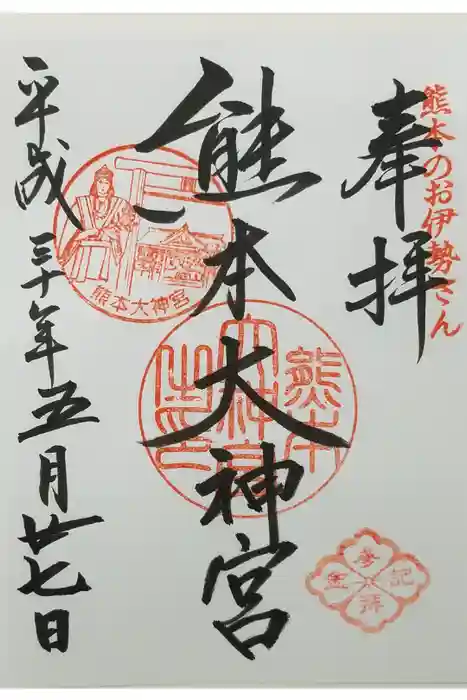 奉拝
熊本のお伊勢さん
熊本大神宮
熊本大神宮
平成三十年五月廿七日
参拝記